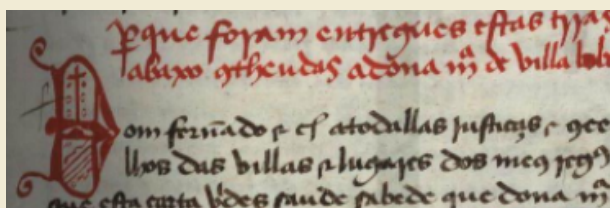 p̱que foram entregues estas trras
abaxo ɔtheudas a dona mª de villa lobo
Dom fernãdo ⁊ cᵗ a todallas justiças ⁊ ɔce
lhos das villas ⁊ lugares dos meꝰ regᵒˢ
que esta carta vꝰdes saude sabede que dona mª